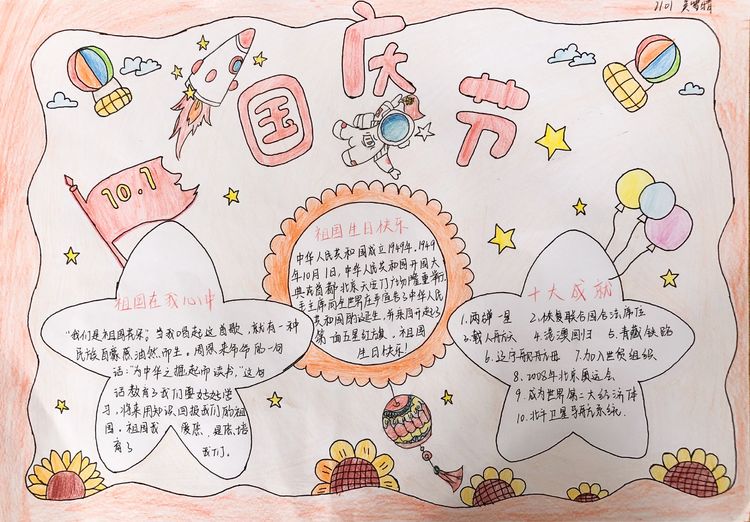 1101
国庆节
10.1
祖国在我心中
"我们是祖国花朵"当我唱起这首歌,就有一种
民族自豪感油然而生。周恩来爷爷的一句
话:"为中华之掘起而读书。"这句
话教育了我们要好好学
习,将来用知识回报我们的祖
国。祖国我 是您培
育了 我们。
祖国生日快乐
中华人民共和国成立1949年,1949
年10月1日,中华人民共和国开国大
典在首都北京天安门广场隆重举行,
毛主席向全世界庄严宣告了中华人民
共和国的诞生,并亲自升起了
第一面五星红旗。祖国
生日快乐!
十大成就
1.两弹一星 2.恢复联合国合法席位
3.载人航天 4.港澳回归 5.青藏铁路
6.辽宁号航母 7.加入世贸组织
8.2008年北京奥运会
9.成为世界第二大经济体
10.北斗卫星导航系统.